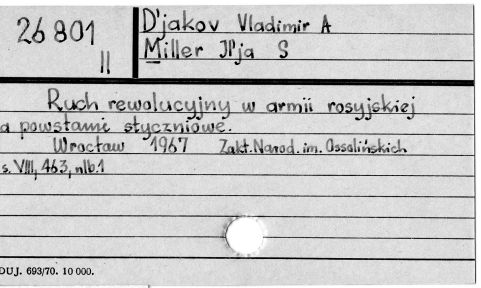 26 801
II
D'jakov Vladimir A
Miller Il'ja S
Ruch rewolucyjny w armii rosyjskiej
a powstanie styczniowe.
Wrocław 1967 Zakł. Narod. im. Ossolińskich
s. VIII, 463, nlb.1
DUJ. 693/70. 10 000.